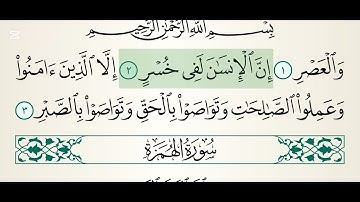 بِسْمِ ٱللَّهِ ٱلرَّحْمَٰنِ ٱلرَّحِيمِ
وَٱلْعَصْرِ ١ إِنَّ ٱلْإِنسَٰنَ لَفِى خُسْرٍ ٢ إِلَّا ٱلَّذِينَ ءَامَنُوا۟
وَعَمِلُوا۟ ٱلصَّٰلِحَٰتِ وَتَوَاصَوْا۟ بِٱلْحَقِّ وَتَوَاصَوْا۟ بِٱلصَّبْرِ ٣
سُورَةُ الهُمَزَةِ